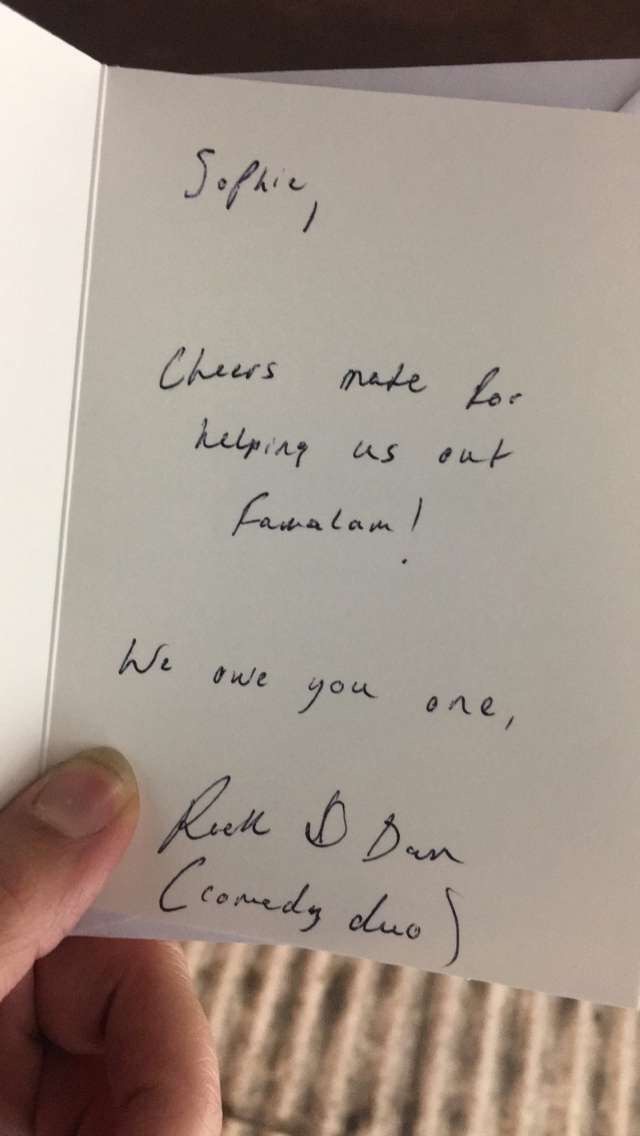 Sophie,
Cheers mate for
helping us out
Famalam!
We owe you one,
& Dan
(comedy duo)